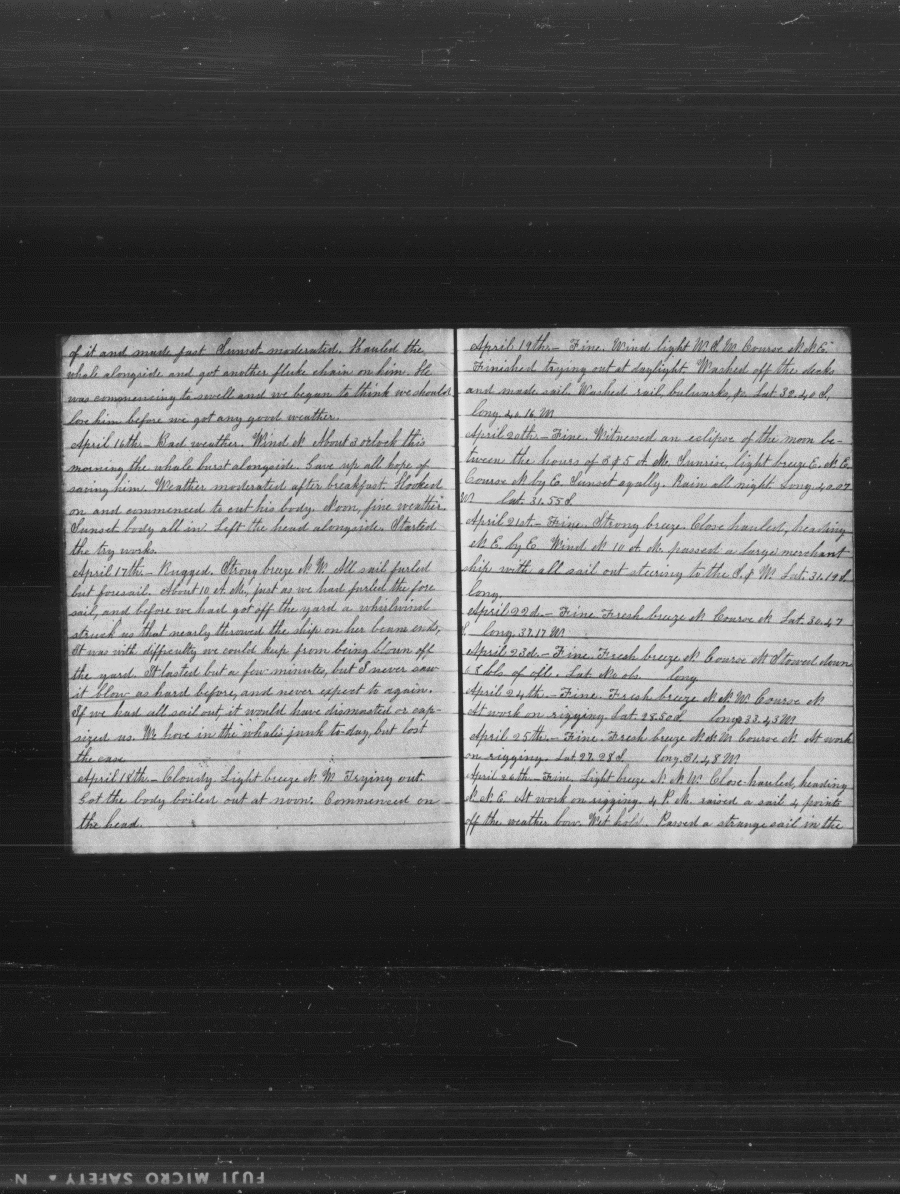 of it and made fast Sunset moderated. Hauled the
whale alongside and got another fluke chain on him. He
was commencing to swell and we began to think we should
lose him before we got any good weather.
April 16th – Bad weather. Wind N. About 3 o'clock this
morning the whale burst alongside. Gave up all hope of
saving him. Weather moderated after breakfast. Hooked
on and commenced to cut his body. Noon, fine weather.
Sunset body all in. Left the head alongside. Started
the try works.
April 17th – Rugged. Strong breeze N. W. All sail furled
but foresail. About 10 A. M., just as we had furled the fore
sail, and before we had got off the yard a whirlwind
struck us that nearly throwed the ship on her beam ends.
It was with difficulty we could keep from being blown off
the yard. It lasted but a few minutes, but I never saw
it blow as hard before, and never expect to again.
If we had all sail out, it would have dismasted or cap-
sized us. We hove in the whale's junk to-day, but lost
the case
April 18th – Cloudy. Light breeze N. W. Trying out
Got the body boiled out at noon. Commenced on
the head.
April 19th – Fine. Wind light W. S. W. Course N. N. E.
Finished trying out at daylight. Washed off the decks
and made sail. Washed rail, bulwarks, &c. Lat 32.40 S,
long. 40.16 W
April 20th – Fine. Witnessed an eclipse of the moon be-
tween the hours of 3 & 5 A. M. Sunrise, light breeze E. N. E.
Course N. by E. Sunset squally. Rain all night. Long. 40.07
W Lat. 31.55 S.
April 21st – Fine. Strong breeze. Close hauled, heading
N. E. by E. Wind N. 10 A. M. passed a large merchant
ship with all sail out steering to the S. & W. Lat. 31.19 S.
long.
April 22d. – Fine. Fresh breeze N. Course N. Lat. 30.47
S. long. 37.17 W
April 23d. – Fine. Fresh breeze N. Course N. Stowed down
bbls of oil. Lat. No obs. long
April 24th. – Fine. Fresh breeze N. N. W. Course N.
At work on rigging. Lat. 28.50 S long. 33.43 W
April 25th. – Fine. Fresh breeze N. & W. Course N. At work
on rigging. Lat 27.28 S, long. 31.48 W
April 26th – Fine. Light breeze N. N. W. Close hauled, heading
N. N. E. At work on rigging. 4 P. M. raised a sail 4 points
off the weather bow. Wet hold. Passed a strange sail in the
FUJI MICRO SAFETY ▲ N